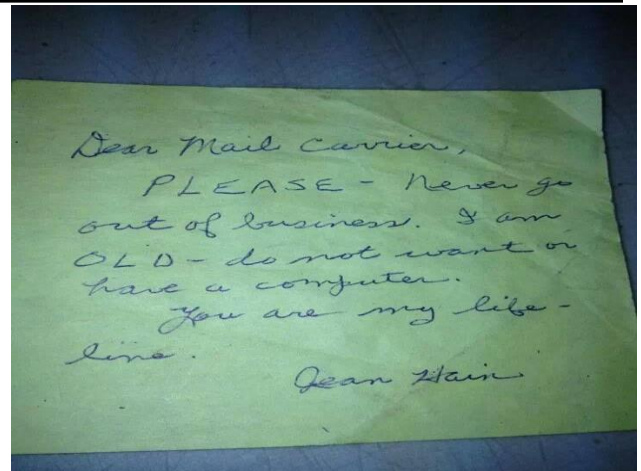 Dear Mail Carrier,
PLEASE - Never go
out of business. I am
OLD - do not want or
have a computer.
You are my life-
line.
Jean Hain